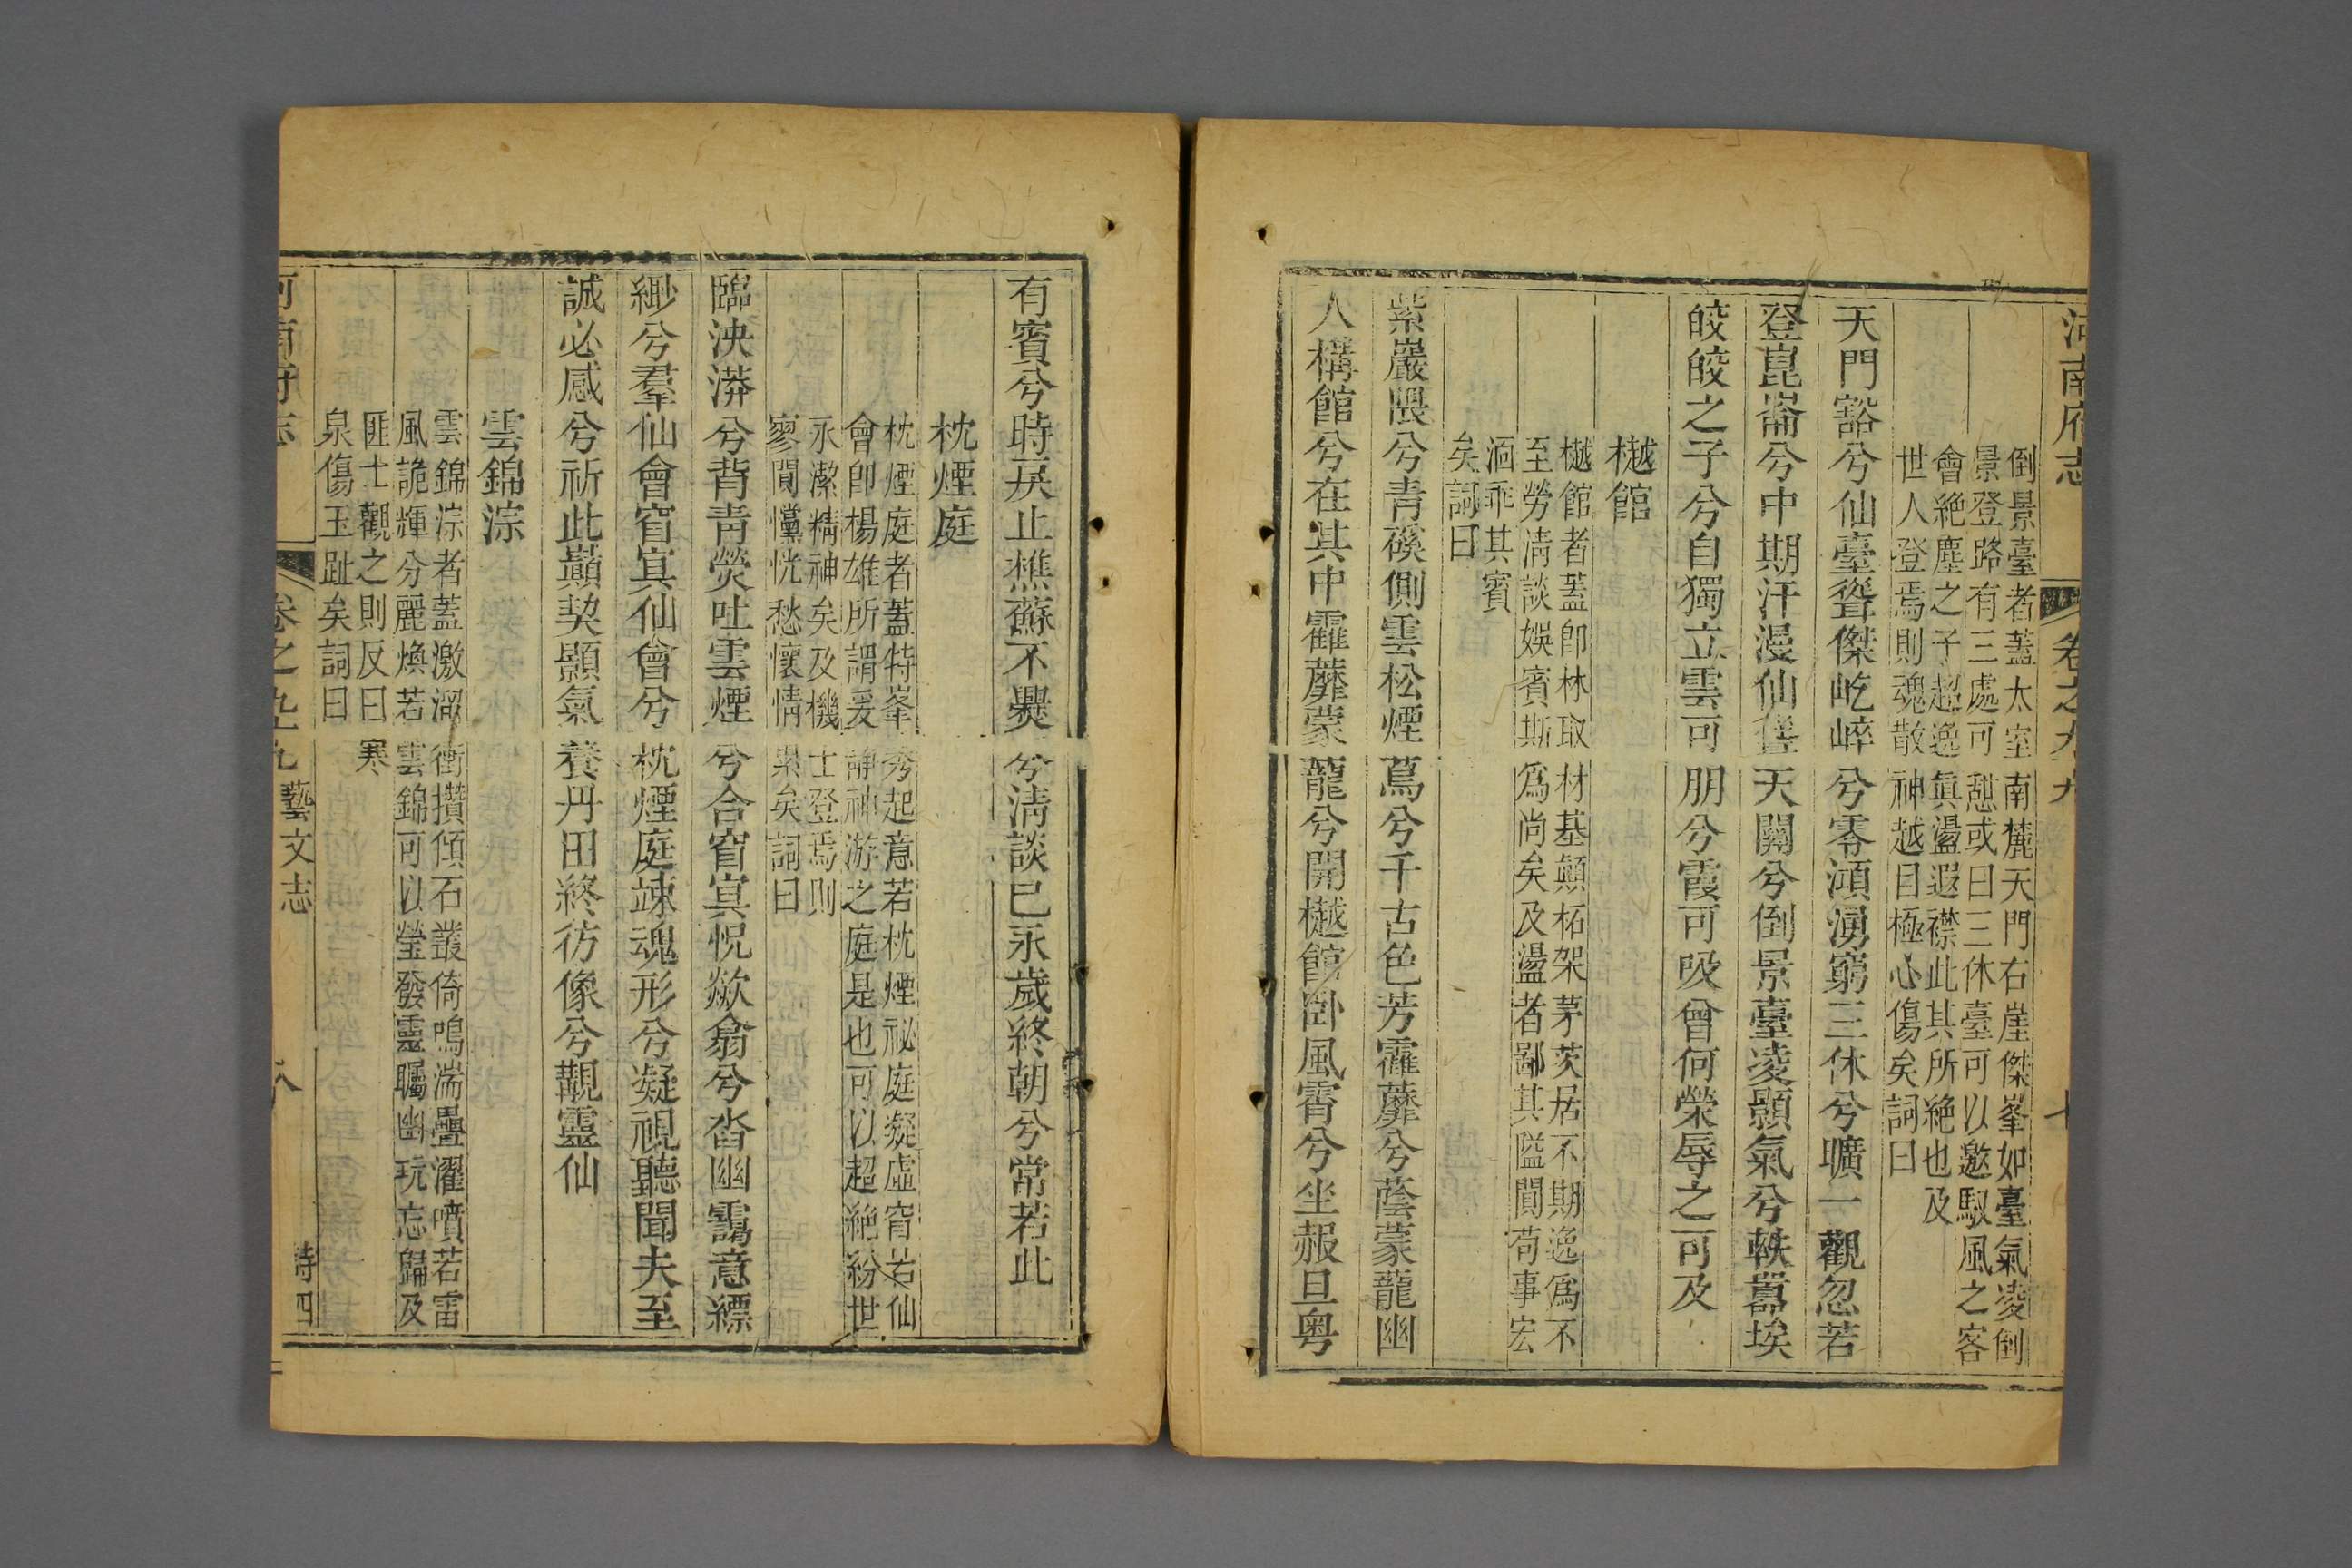 河南府志 卷之九十九 七
倒景臺者蓋太室南麓天門右崖傑峯如臺氣凌倒
景登路有三處可憇或曰三休臺可以邀馭風之客
會絶塵之子超逸眞盪遐襟此其所絶也及
世人登焉則魂散神越目極心傷矣詞曰
天門豁兮仙臺聳傑屹崪兮零澒湧窮三休兮曠一觀忽若
登崑崙兮中期汗漫仙聳天關兮倒景臺凌顥氣兮軼囂埃
皎皎之子兮自獨立雲可朋兮霞可吸曾何榮辱之可及
樾館
樾館者蓋卽林取材基顛柘架茅茨居不期逸爲不
至勞淸談娛賓斯爲尚矣及盪者鄙其隘闃苟事宏
湎乖其賓
矣詞曰
紫巖隈兮青磎側雲松煙蔦兮千古色芳靃蘼兮蔭蒙蘢幽
人構館兮在其中靃蘼蒙蘢兮開樾館臥風霄兮坐赧旦粤
有賓兮時戾止樵蘇不爨兮淸談已永歲終朝兮常若此
枕煙庭
枕煙庭者蓋特峯秀起意若枕煙祕庭凝虛窅若仙
會卽楊雄所謂爰靜神游之庭是也可以超絶紛世
永潔精神矣及機士登焉則
寥闃戃恍愁懷情累矣詞曰
臨泱漭兮背靑熒吐雲煙兮合窅冥怳歘翕兮沓幽靄意縹
緲兮羣仙會窅冥仙會兮枕煙庭竦魂形兮凝視聽聞夫至
誠必感兮祈此巔契顥氣養丹田終彷像兮覯靈仙
雲錦淙
雲錦淙者蓋激溜衝攢傾石叢倚鳴湍疊濯噴若雷
風詭輝分麗煥若雲錦可以瑩發靈矚幽玩忘歸及
匪士觀之則反曰寒
泉傷玉趾矣詞曰
河南府志 卷之九十九 藝文志 八 詩四